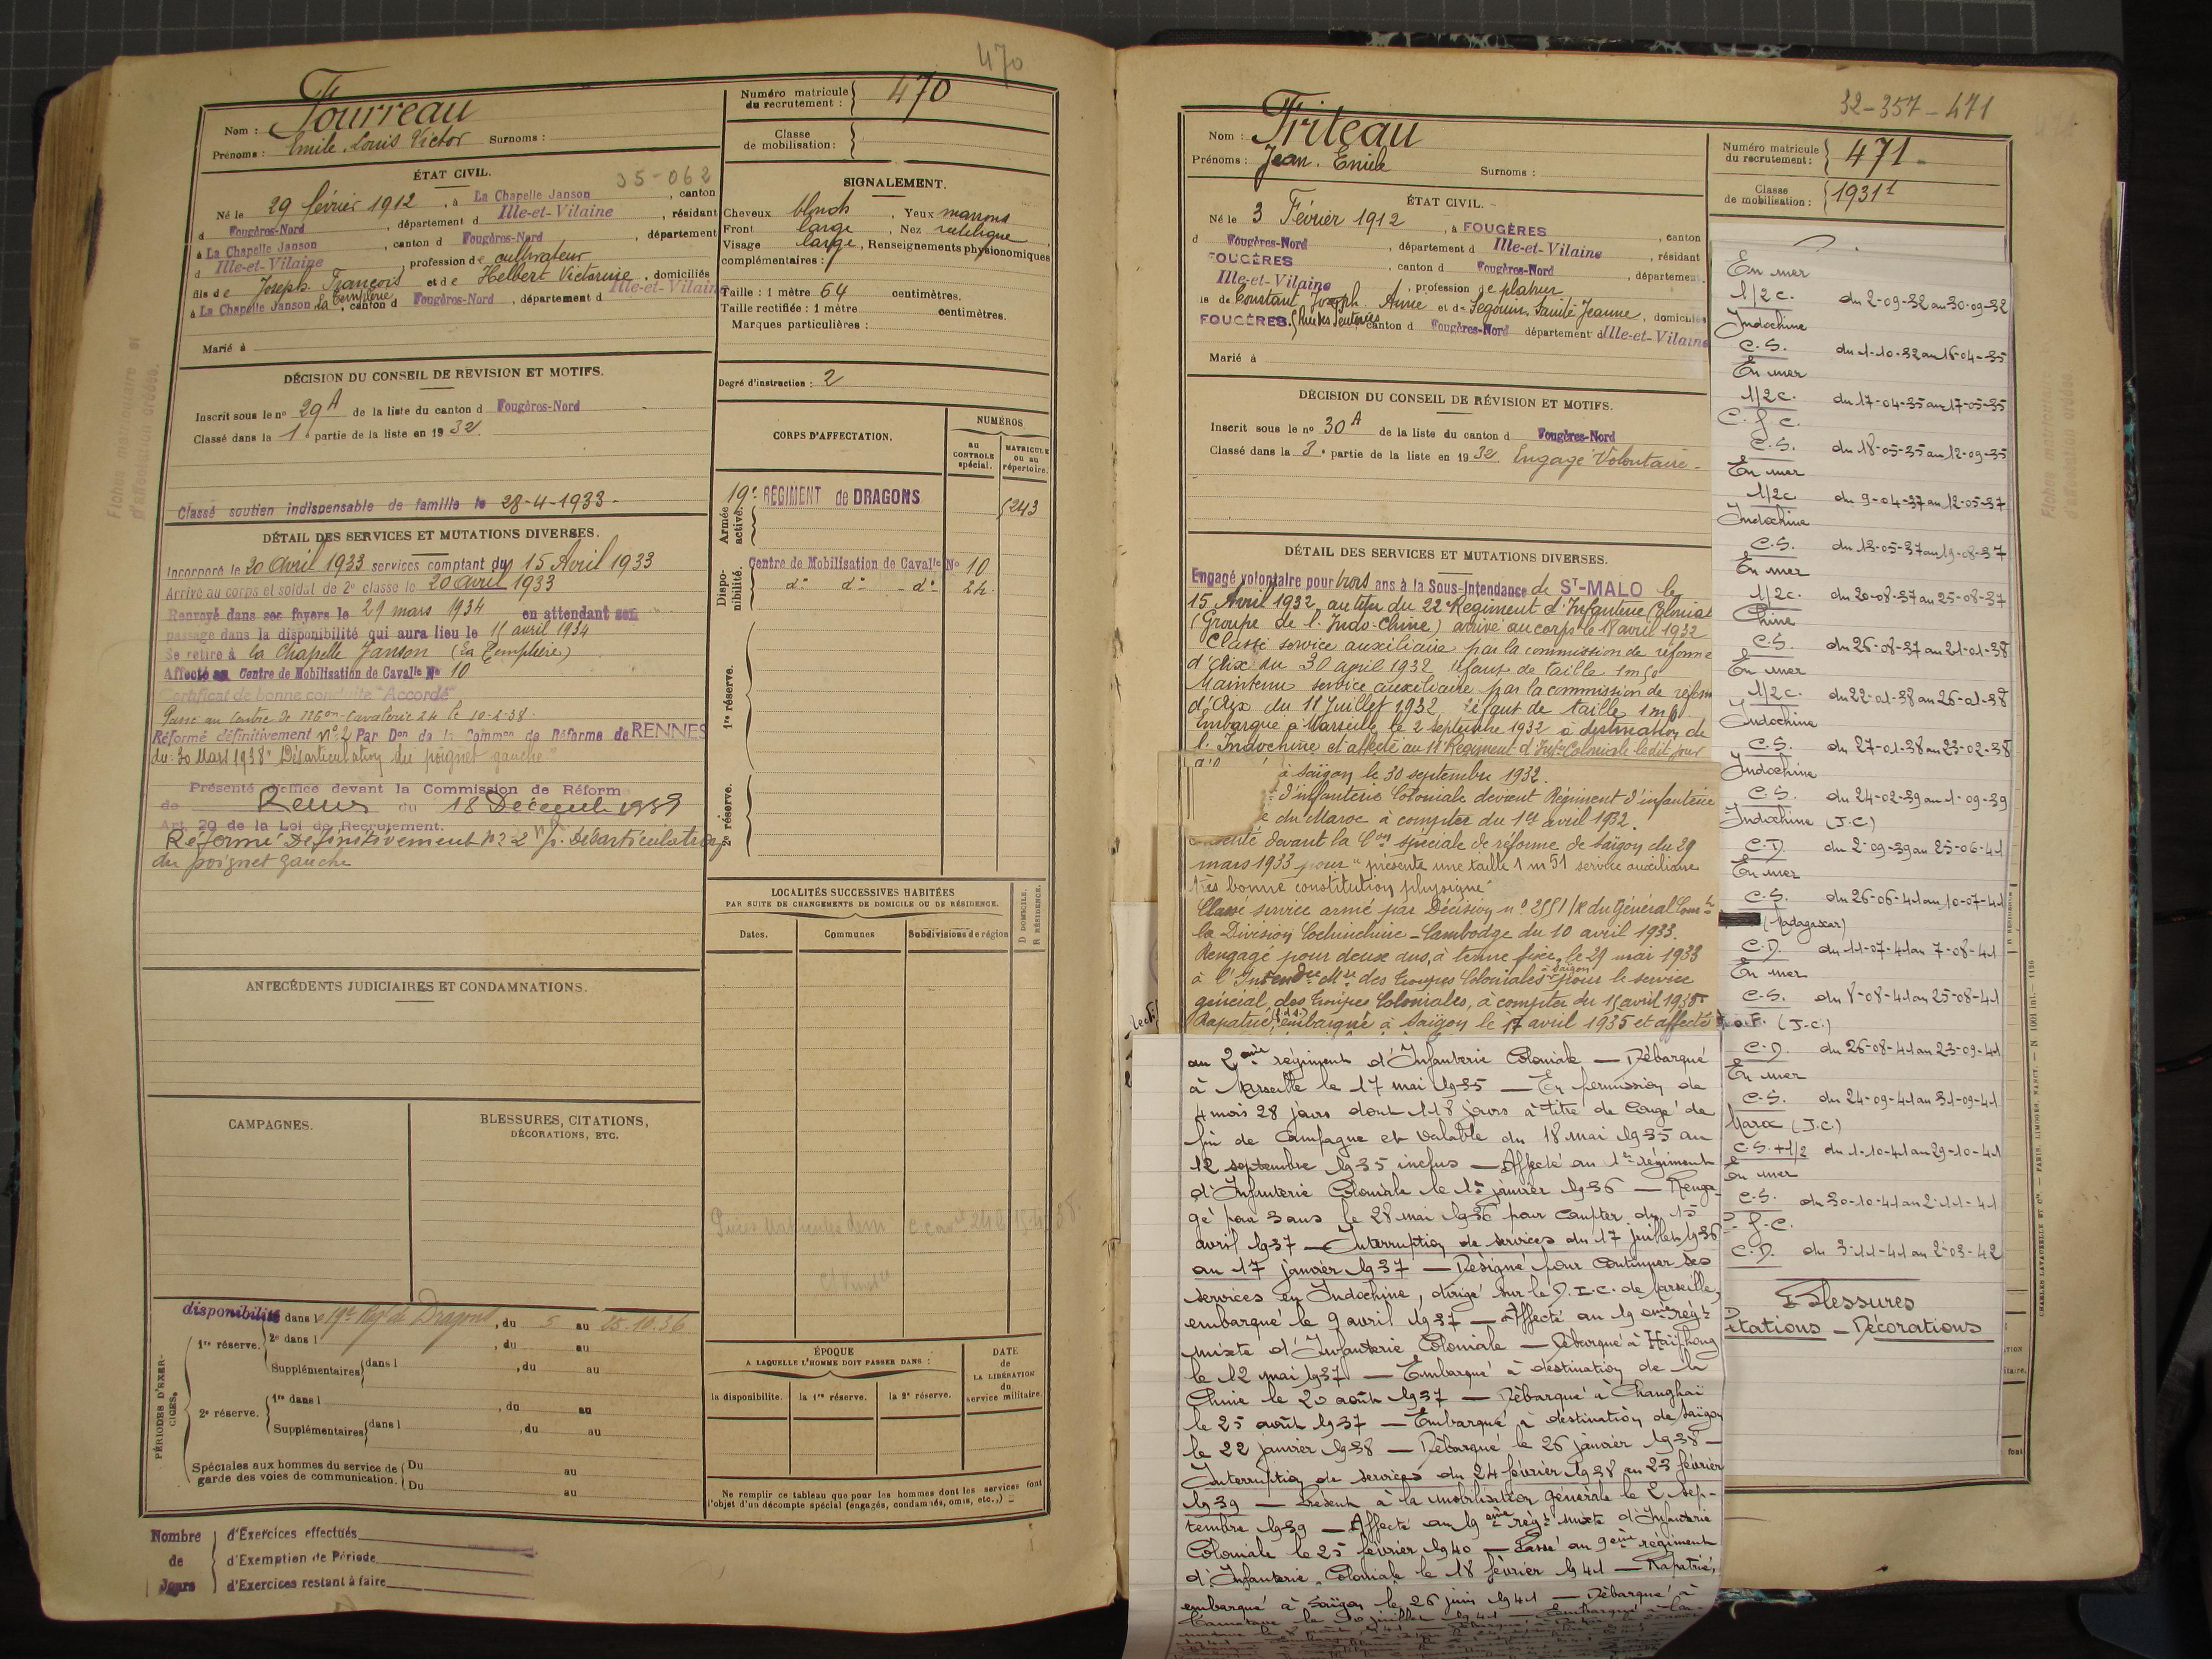 470
Nom : Fourreau
Prénoms : Emile. Louis Victor Surnoms :
Numéro matricule du recrutement : 470
Classe de mobilisation :
ÉTAT CIVIL.
35-062
Né le 29 février 1912 , à La Chapelle Janson , canton
d Fougères-Nord , département d Ille-et-Vilaine , résidant
à La Chapelle Janson , canton d Fougères-Nord , département
d Ille-et-Vilaine , profession de cultivateur
fils de Joseph. François et de Helbert Victorine , domiciliés
à La Chapelle Janson La Templerie , canton d Fougères-Nord , département d Ille-et-Vilaine
Marié à
SIGNALEMENT.
Cheveux blonds , Yeux marrons
Front large , Nez rectiligne
Visage large , Renseignements physionomiques
complémentaires :
Taille : 1 mètre 64 centimètres.
Taille rectifiée : 1 mètre centimètres.
Marques particulières :
Degré d'instruction : 2
DÉCISION DU CONSEIL DE REVISION ET MOTIFS.
Inscrit sous le nº 29A de la liste du canton d Fougères-Nord
Classé dans la 1e partie de la liste en 1932.
Classé soutien indispensable de famille le 28-4-1933-
DÉTAIL DES SERVICES ET MUTATIONS DIVERSES.
Incorporé le 20 avril 1933 services comptant du 15 Avril 1933
Arrivé au corps et soldat de 2e classe le 20 avril 1933
Renvoyé dans ses foyers le 29 mars 1934 en attendant son
passage dans la disponibilité qui aura lieu le 15 avril 1934
Se retire à la Chapelle Janson (La Templière)
Affecté au Centre de Mobilisation de Cavalle Nº 10
Certificat de bonne conduite "Accordé"
Passé au Centre de Mon Cavalerie 24 le 10-2-38.
Réformé définitivement nº 2 Par Don de la Common de Réforme de RENNES
du 30 Mars 1938 "Désarticulation du poignet gauche"
Présenté d'office devant la Commission de Réform
de Rennes du 18 Décembre 1939
Art. 20 de la Loi de Recrutement.
Réformé Définitivement Nº 2 p. Désarticulation
du poignet gauche
CORPS D'AFFECTATION.
NUMÉROS
AU CONTROLE spécial.
MATRICULE OU AU répertoire.
Armée active.
19e RÉGIMENT de DRAGONS
5243
Disponibilité.
Centre de Mobilisation de Cavalle Nº 10
dº dº dº 24.
1re réserve.
2e réserve.
LOCALITÉS SUCCESSIVES HABITÉES
PAR SUITE DE CHANGEMENTS DE DOMICILE OU DE RÉSIDENCE.
Dates.
Communes
Subdivisions de région
D DOMICILE.
R RÉSIDENCE.
ANTÉCÉDENTS JUDICIAIRES ET CONDAMNATIONS.
CAMPAGNES.
BLESSURES, CITATIONS,
DÉCORATIONS, ETC.
PÉRIODES D'EXERCICES.
disponibilité dans le 19e Rég de Dragons , du 5 au 25.10.36
1re réserve. 2e dans l , du au
Supplémentaires dans l , du au
2e réserve. 1re dans l , du au
Supplémentaires dans l , du au
Spéciales aux hommes du service de garde des voies de communication. Du au
Du au
ÉPOQUE
A LAQUELLE L'HOMME DOIT PASSER DANS :
la disponibilité.
la 1re réserve.
la 2e réserve.
DATE de LA LIBÉRATION du service militaire.
Ne remplir ce tableau que pour les hommes dont les services font
l'objet d'un décompte spécial (engagés, condamnés, omis, etc.,)
Nombre de Jours
d'Exercices effectués
d'Exemption de Période
d'Exercices restant à faire
32-357-471
Nom : Friteau
Prénoms : Jean. Emile Surnoms :
Numéro matricule du recrutement : 471
Classe de mobilisation : 1931
ÉTAT CIVIL.
Né le 3 Février 1912 , à FOUGÈRES , canton
d Fougères-Nord , département d Ille-et-Vilaine , résidant
FOUGÈRES , canton d Fougères-Nord , département
Ille-et-Vilaine , profession de platrier
ls de Constant, Joseph. Anne et de Segouin Sainte Jeanne , domiciliés
FOUGÈRES. canton d Fougères-Nord département d Ille-et-Vilaine
Marié à
DÉCISION DU CONSEIL DE RÉVISION ET MOTIFS.
Inscrit sous le nº 30A de la liste du canton d Fougères-Nord
Classé dans la 3e partie de la liste en 1932. Engagé Volontaire-
DÉTAIL DES SERVICES ET MUTATIONS DIVERSES.
Engagé volontaire pour trois ans à la Sous-Intendance de ST-MALO le
15 Avril 1932 au titre du 22e Régiment d'Infanterie Coloniale
(Groupe de l'Indo-Chine) arrivé au corps le 18 avril 1932
Classé service auxiliaire par la commission de réforme
d'Aix du 30 april 1932 défaut de taille 1m50
Maintenu service auxiliaire par la commission de réform
d'Aix du 11 Juillet 1932. défaut de taille 1m50
Embarqué à Marseille le 2 septembre 1932 à destination de
l'Indochine et affecté au 11e Régiment d'Infrie Coloniale ledit jour
à Saïgon le 30 septembre 1932.
d'infanterie Coloniale devient Régiment d'infanterie
e du Maroc à compter du 1er avril 1932.
devant la Con spéciale de réforme de Saïgon du 29
mars 1933 pour "présente une taille 1 m 51 service auxiliaire
très bonne constitution physique"
Classé service armé par Décision nº 2551/R du Général Comt
la Division Cochinchine-Cambodge du 10 avril 1933.
Rengagé pour deux ans, à terme fixe, le 29 mai 1933
à l'Intendce Mre des Troupes Coloniales Saïgon pour le service
général des Troupes Coloniales, à compter du 15 avril 1935
Rapatrié, embarqué à Saïgon le 17 avril 1935 et affecté
au 2ème régiment d'Infanterie Coloniale — Débarqué
à Marseille le 17 mai 1935 — En permission de
4 mois 28 jours dont 118 jours à titre de congé de
fin de Campagne et valable du 18 mai 1935 au
12 septembre 1935 inclus — Affecté au 1er régiment
d'Infanterie Coloniale le 1er janvier 1936 — Renga-
gé pour 3 ans le 28 mai 1936 pour compter du 15
avril 1937 — Interruption de services du 17 juillet 1936
au 17 janvier 1937 — Désigné pour continuer ses
services en Indochine, dirigé sur le D.I.C. de Marseille,
embarqué le 9 avril 1937 — Affecté au 19ème régt
mixte d'Infanterie Coloniale — Débarqué à Haïphong
le 12 mai 1937 — Embarqué à destination de la
Chine le 20 août 1937 — Débarqué à Changhaï
le 25 août 1937 — Embarqué à destination de Saïgon
le 22 janvier 1938 — Débarqué le 26 janvier 1938 —
Interruption de services du 24 février 1938 au 23 février
1939 — Présent à la mobilisation générale le 2 sep-
tembre 1939 — Affecté au 19ème régt mixte d'Infanterie
Coloniale le 25 février 1940 — Passé au 9ème régiment
d'Infanterie Coloniale le 18 février 1941 — Rapatrié,
embarqué à Saïgon le 26 juin 1941 — Débarqué à
Tamatave le 10 juillet 1941 — Embarqué à Ta-
En mer
1/2 c. du 2-09-32 au 30-09-32
Indochine
C.S. du 1-10-32 au 16-04-35
En mer
1/2 c. du 17-04-35 au 17-05-35
C.f.c.
C.S. du 18-05-35 au 12-09-35
En mer
1/2 c du 9-04-37 au 12-05-37
Indochine
C.S. du 13-05-37 au 19-08-37
En mer
1/2 c. du 20-08-37 au 25-08-37
Chine
C.S. du 26-08-37 au 21-01-38
En mer
1/2 c. du 22-01-38 au 26-01-38
Indochine
C.S. du 27-01-38 au 23-02-38
Indochine
C.S. du 24-02-39 au 1-09-39
Indochine (J.C)
C.D. du 2-09-39 au 25-06-41
En mer
C.S. du 26-06-41 au 10-07-41
(Madagascar)
C.D. du 11-07-41 au 7-08-41
En mer
C.S. du 8-08-41 au 25-08-41
o.F. (J-C.)
C.D. du 26-08-41 au 23-09-41
En mer
C.S. du 24-09-41 au 31-09-41
Maroc (J.C)
C.S.+1/2 du 1-10-41 au 29-10-41
En mer
C.S. du 30-10-41 au 2-11-41
C.D. du 3-11-41 au 2-03-42
Blessures
itations — Décorations
CHARLES LAVAUZELLE ET Cie. — PARIS, LIMOGES, NANCY.